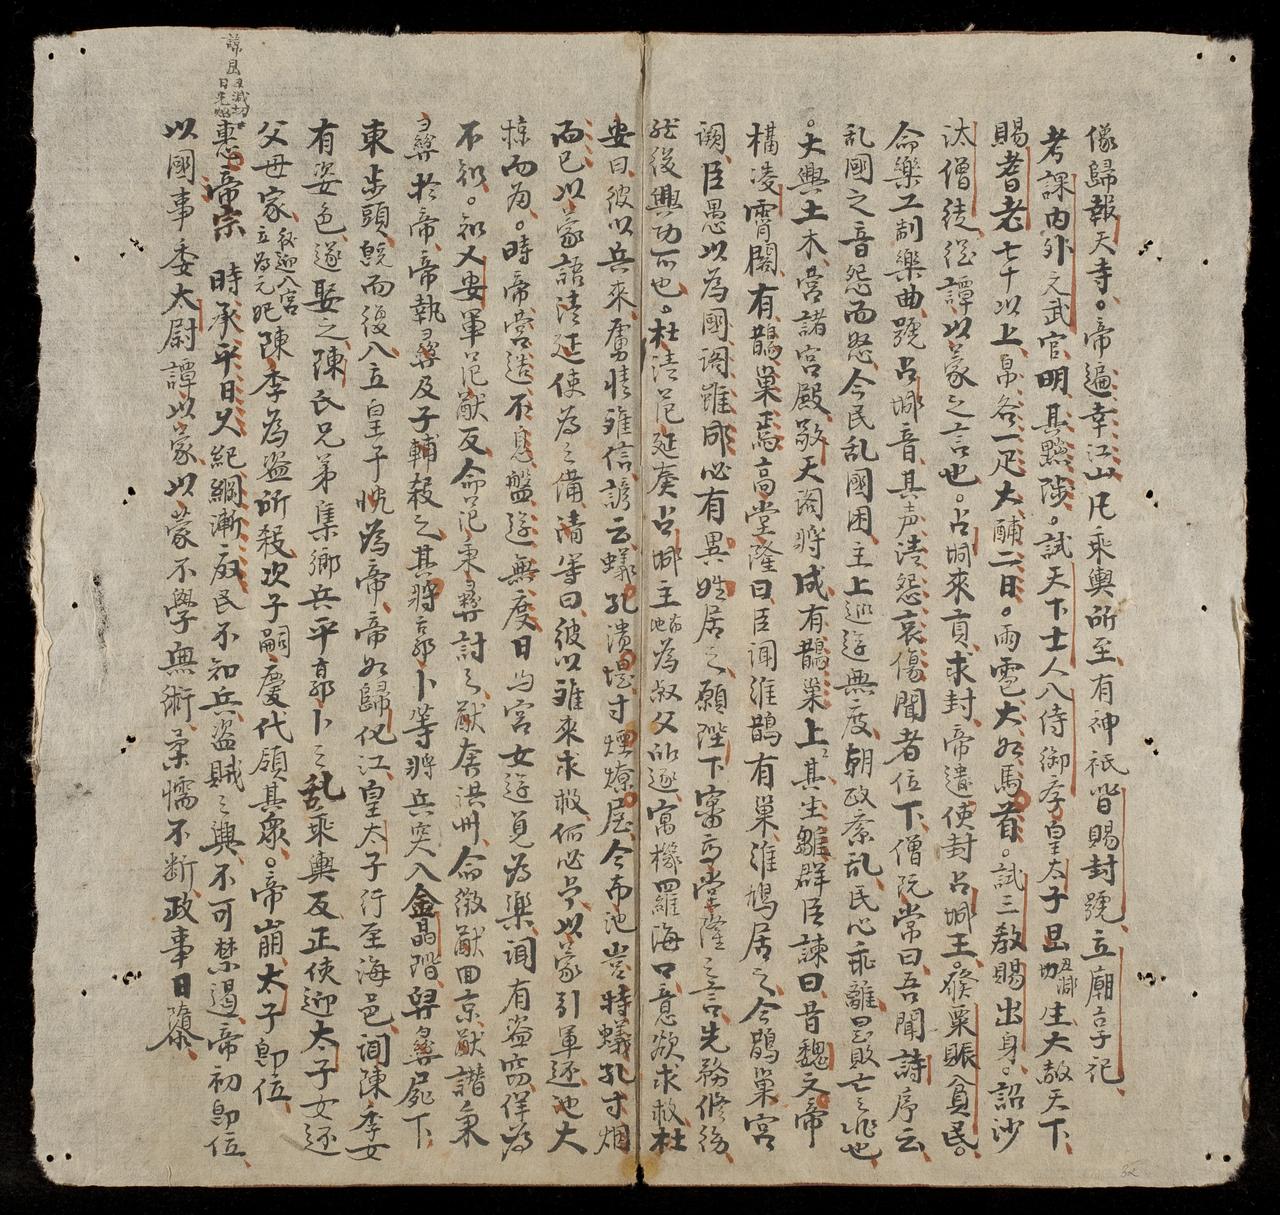 像歸報天寺。帝遍幸江山凡乘輿所至有神祇皆賜封號立廟享祀
考課內外文武官明其黜陟。試天下士人入侍御孝皇太子昷生大赦天下
賜耆老七十以上帛各一疋大酺二日。雨雹大如馬首。試三教賜出身。詔沙
汰僧徒從譚以蒙之言也。占城來貢求封帝遣使封占城王。發粟賑貧民。
命樂工制樂曲號占城音其声清怨哀傷聞者位下僧阮常曰吾聞詩序云
乱國之音怨而怒今民乱國困主上巡遊無度朝政紊乱民心乖離是敗亡之兆也
。大興土木营諸宮殿敬天閣將成有鵲巢上其生雛群臣諫曰昔魏文帝
構凌霄閣有鵲巢焉高堂隆曰臣聞維鵲有巢維鳩居之今鵲巢宮
阙臣愚以為國閣雖成必有異姓居之願陛下審高堂隆之言先務修德
然後興功可也。杜清范延奏占城主布池為叔父所逐寓機羅海口意欲求救杜
安曰彼以兵來虜情難信諺云蟻孔潰堤寸烟燎屋今布池豈特蟻孔寸烟
而已以蒙語清延使為之備清等曰彼以難來求救何必尔以蒙引軍还池大
掠而为。時帝营造不息盤遊無度日与宮女遊見為樂闻有盗窃佯為
不知。知乂安軍范猷反命范秉彝討之猷奔洪州命徵猷回京猷譖秉
彝於帝帝執彝及子輔殺之其將郭卜等將兵突入金晶階舁彝屍下
東步頭既而復入立皇子忱為帝帝如歸化江皇太子行至海邑闻陳李女
有姿色遂娶之陳氏兄弟集鄉兵平郭卜之乱乘輿反正使迎太子女还
父母家後迎入宮立為元妃陳李為盗所殺次子嗣慶代領其衆。帝崩太子卽位
諱昷
惠帝宗 時承平日久紀綱漸廢民不知兵盜賊之興不可禁遏帝初卽位
以國事委太尉譚以蒙以蒙不學無術柔懦不断政事日隳